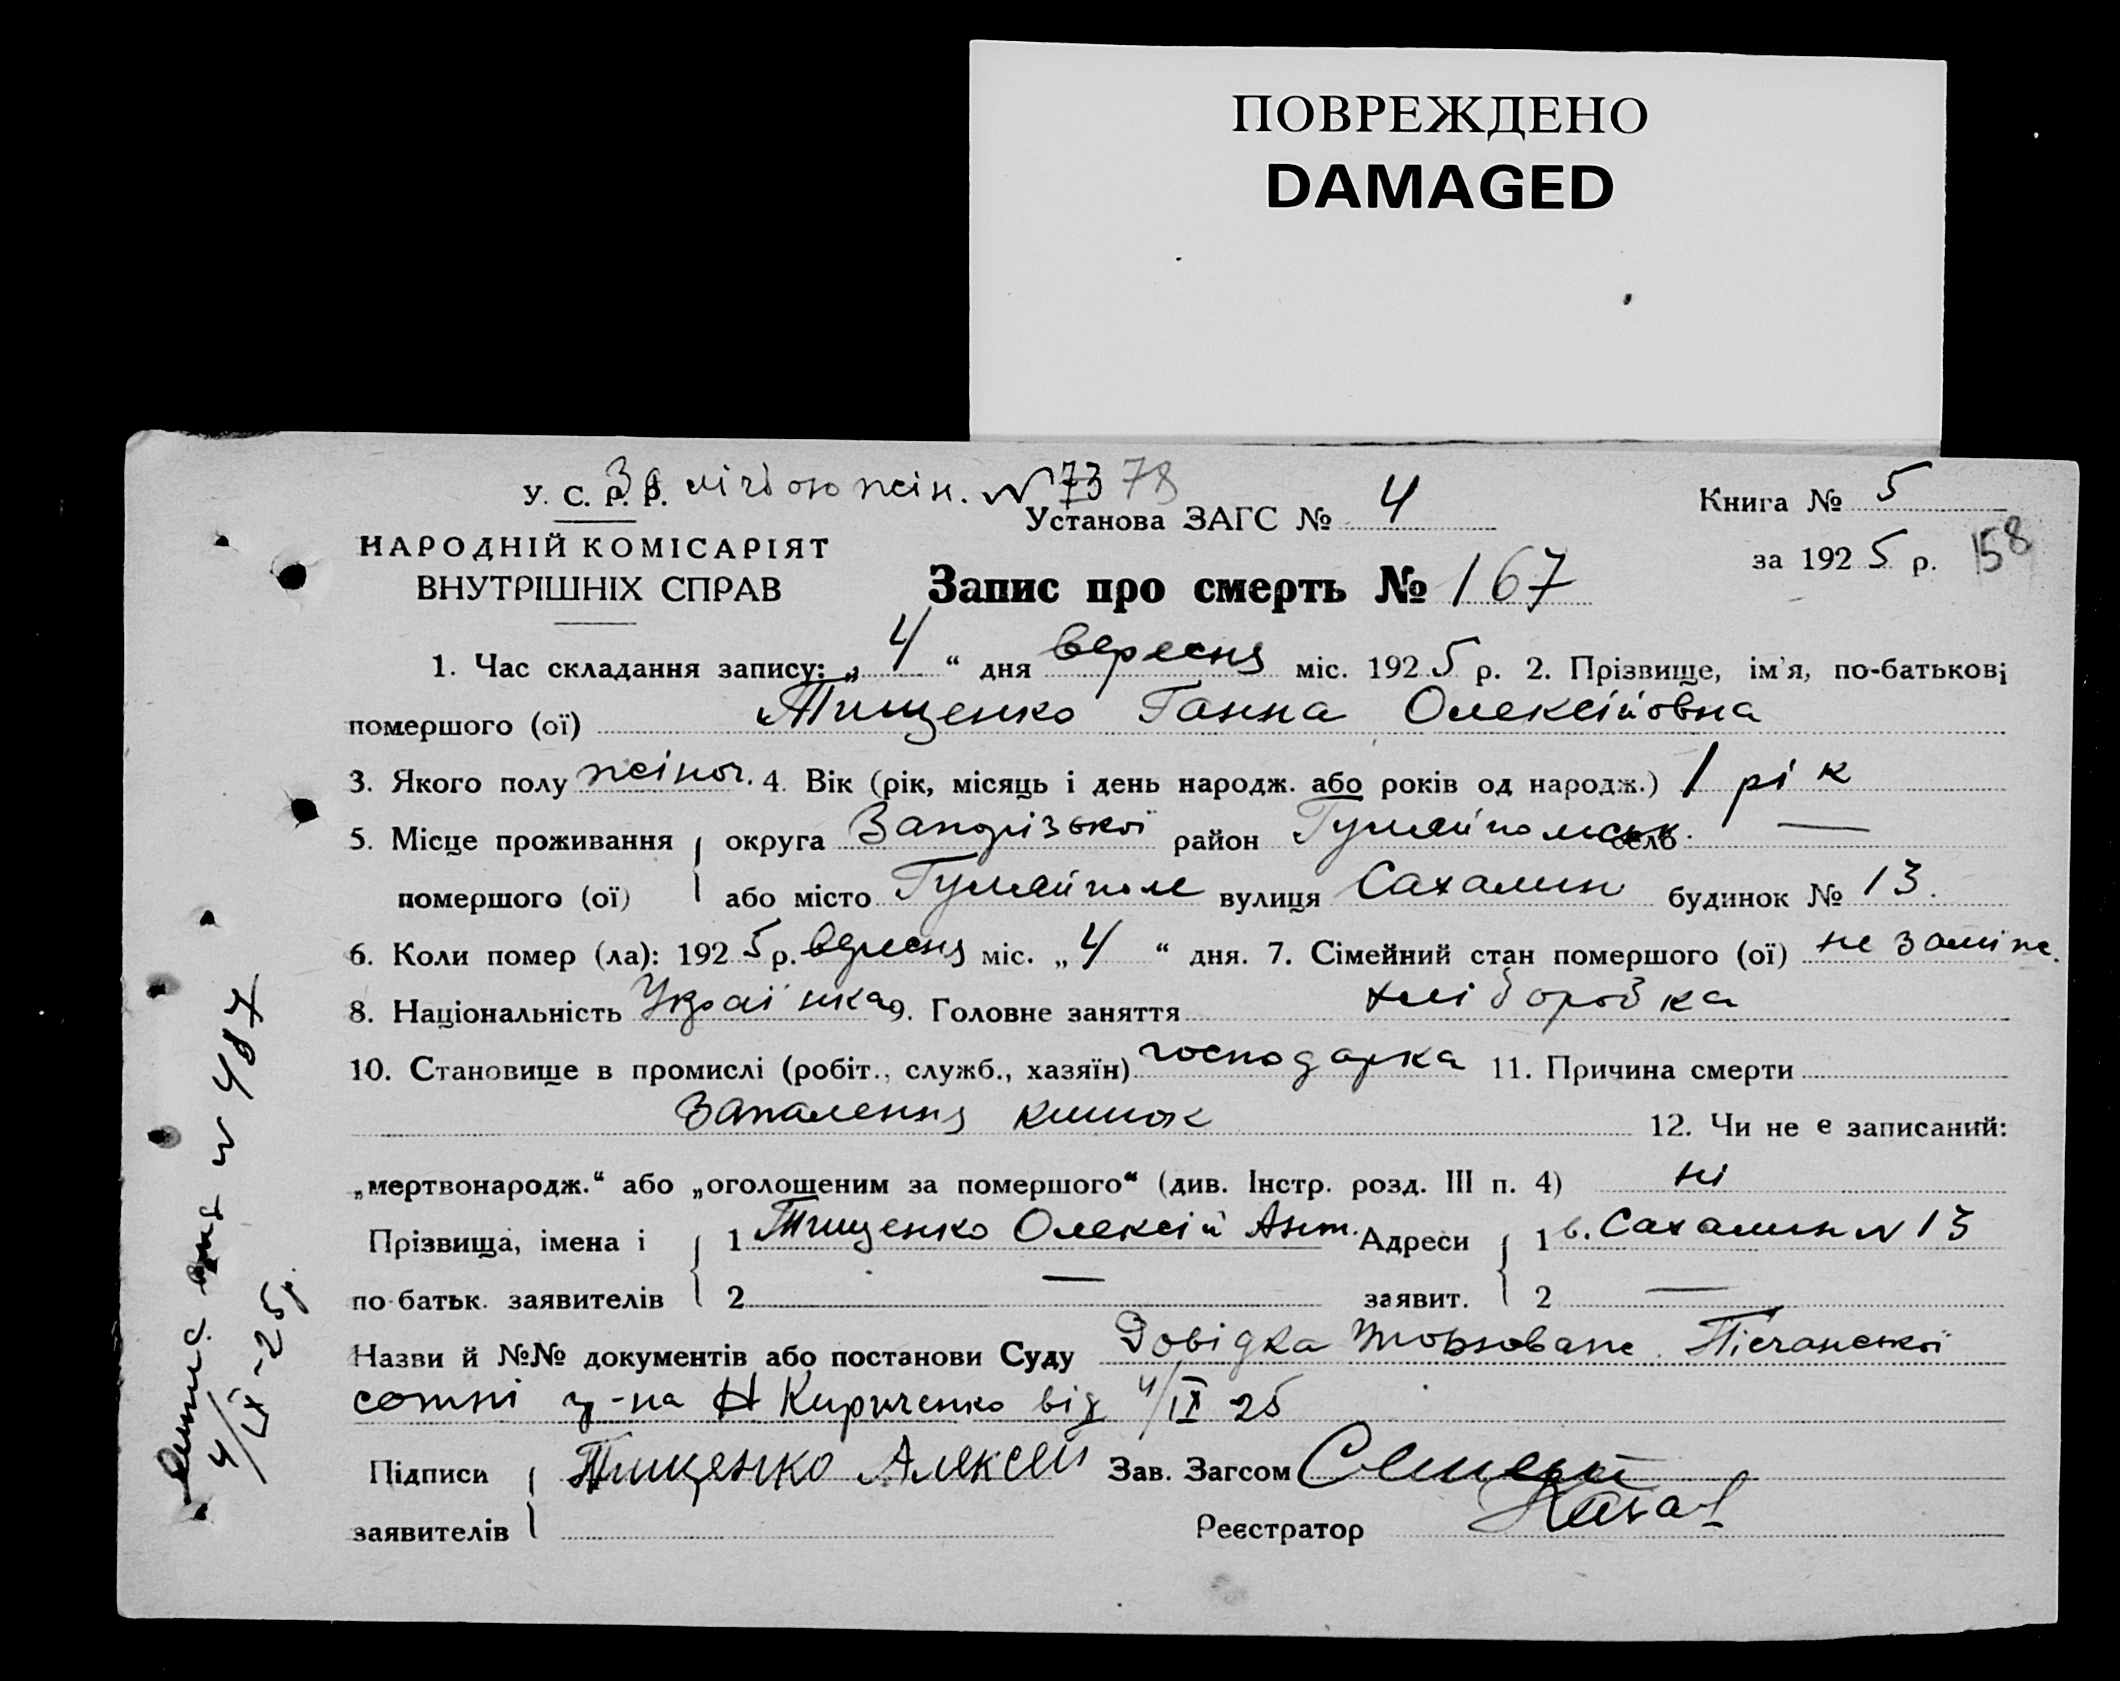 ПОВРЕЖДЕНО
DAMAGED
У. С. Р. Р. За лічбою жін. № 73 78
Установа ЗАГС № 4
Книга № 5
НАРОДНІЙ КОМІСАРІЯТ
ВНУТРІШНІХ СПРАВ
за 1925 р. 158
Запис про смерть № 167
1. Час складання запису: „4“ дня вересня міс. 1925 р. 2. Прізвище, ім'я, по-батькові
помершого (ої) Тищенко Ганна Олексіівна
3. Якого полу жіноч. 4. Вік (рік, місяць і день народж. або років од народж.) 1 рік
5. Місце проживання округа Запорізької район Гуляйпольськ. село —
помершого (ої) або місто Гуляйполе вулиця Сахалин будинок № 13.
6. Коли помер (ла): 1925 р. вересня міс. „4“ дня. 7. Сімейний стан помершого (ої) не заміж.
8. Національність Українка 9. Головне заняття хліборобка
10. Становище в промислі (робіт., служб., хазяїн) господарка 11. Причина смерти
Запалення кишок 12. Чи не є записаний:
„мертвонародж.“ або „оголошеним за помершого“ (див. Інстр. розд. III п. 4) ні
Прізвища, імена і 1 Тищенко Олексій Ант. Адреси 1 в. Сахалин № 13
по-батьк. заявителів 2 — заявит. 2 —
Назви й №№ документів або постанови Суду Довідка Піečanської
сотні Кириченко від 4/IX 25
Підписи Тищенко Алексей Зав. Загсом
заявителів Реєстратор
№ 487
4/IX-25р.